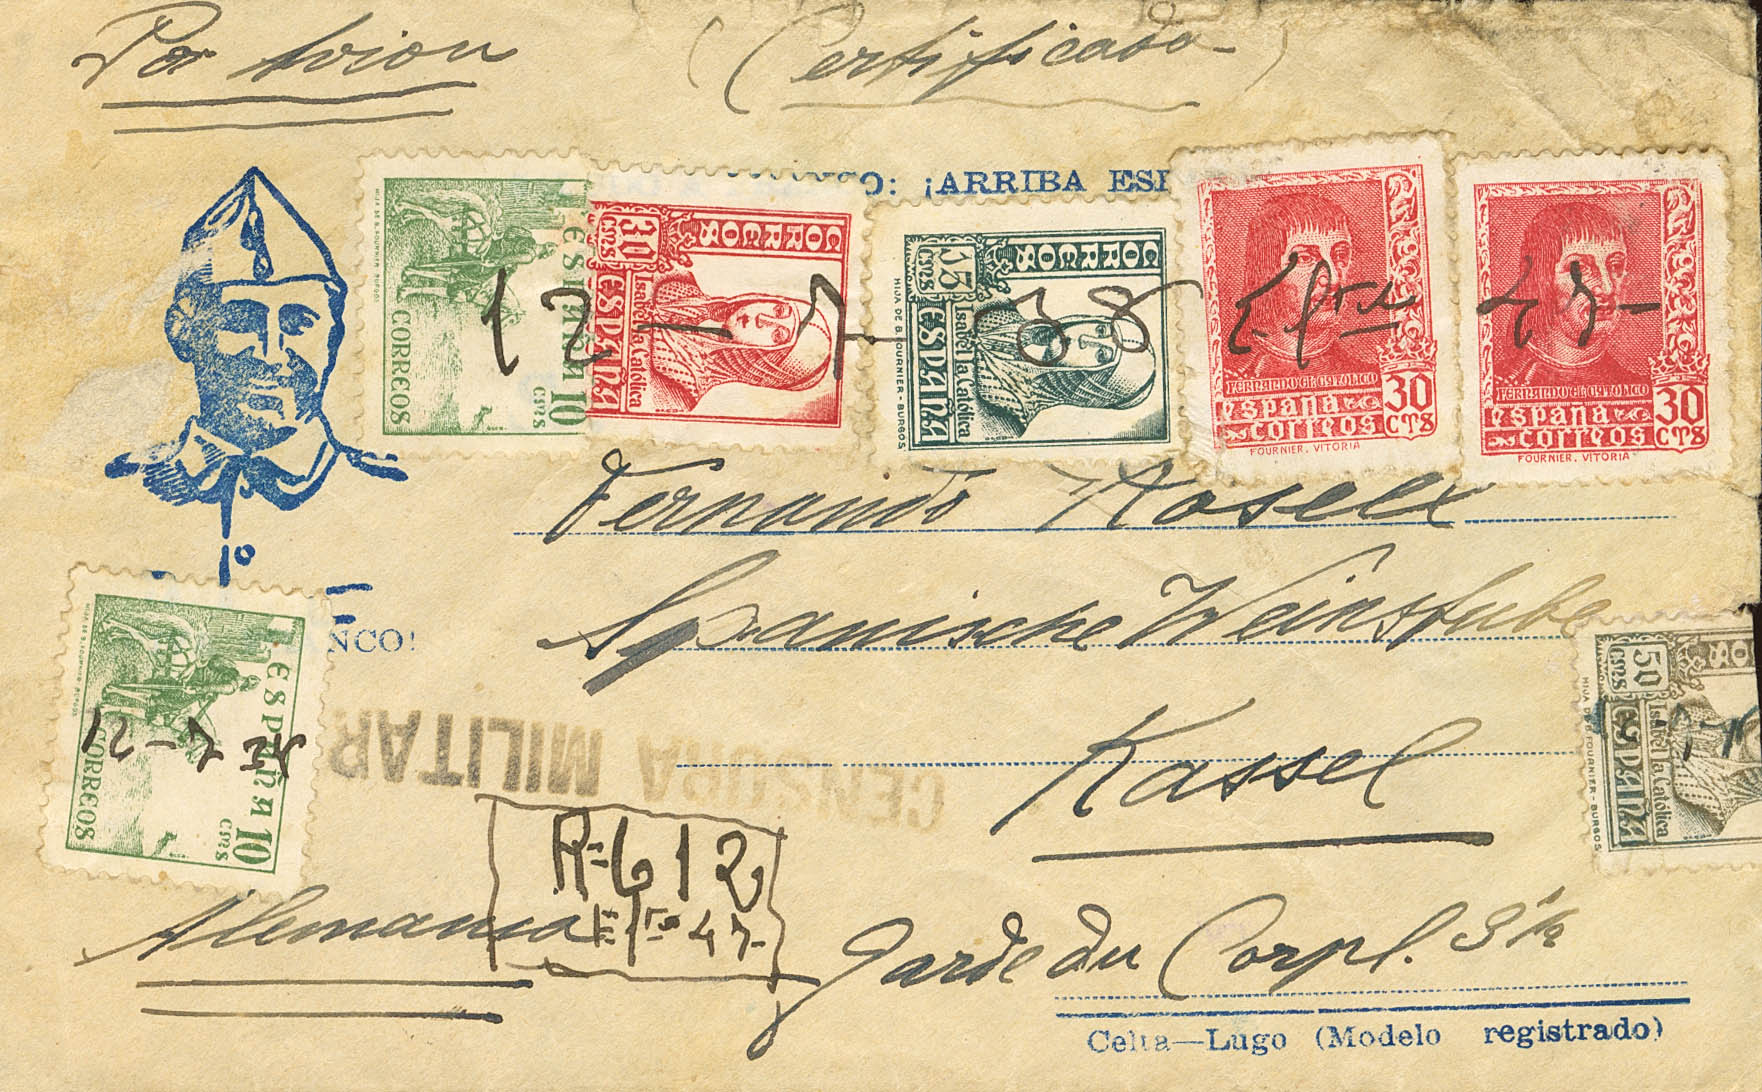 Por Avion (Certificado)
O: ¡ARRIBA ESP
ESPAÑA
CORREOS
10 CTS
HIJA DE B. FOURNIER-BURGOS
CORREOS
30 CTS
ESPAÑA
Isabel la Católica
CORREOS
15 CTS
ESPAÑA
Isabel la Católica
HIJA DE B. FOURNIER-BURGOS
FERNANDO EL CATOLICO
ESPAÑA
CORREOS
30 CTS
FOURNIER. VITORIA
FERNANDO EL CATOLICO
ESPAÑA
CORREOS
30 CTS
FOURNIER. VITORIA
12-7-38
47-
Fernando
Spanische Weinstube
Kassel
NCO!
ESPAÑA
CORREOS
10 CTS
12-7
50 CTS
ESPAÑA
Isabel la Católica
HIJA DE B. FOURNIER-BURGOS
CENSURA MILITAR
R=612
47-
Alemania
Garde du Corpl.
Celta—Lugo (Modelo registrado)